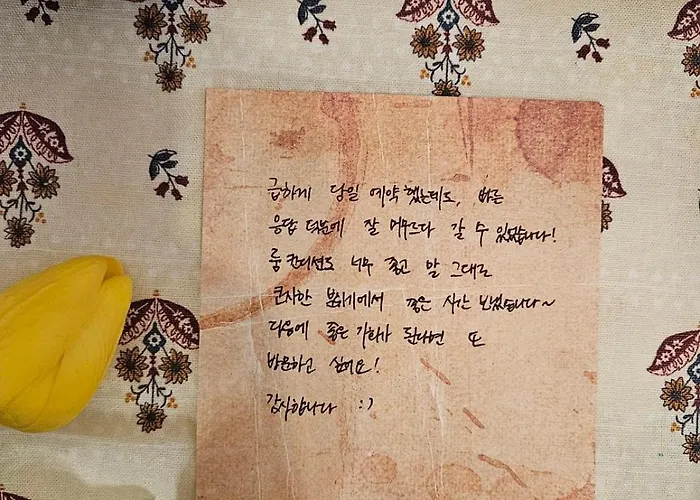 급하게 당일 예약했는데도, 빠른
응답 덕분에 잘 머무르다 갈 수 있었습니다!
룸 컨디션도 너무 좋고 말 그대로
근사한 분위기에서 좋은 시간 보냈습니다~
다음에 좋은 기회가 된다면 또
방문하고 싶어요!
감사합니다 :)